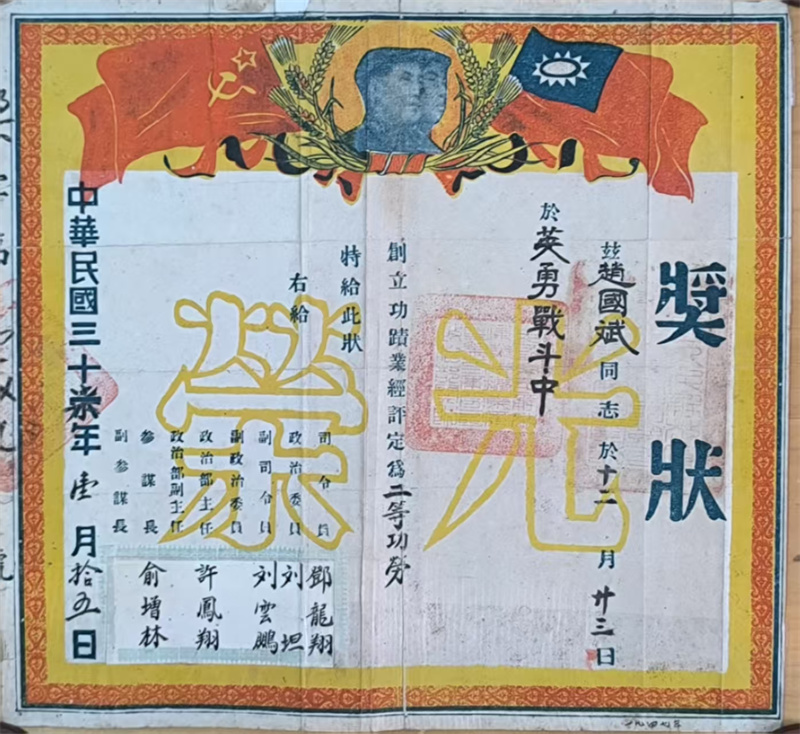 獎狀
茲趙國斌同志於十二月廿三日
於英勇戰斗中
創立功蹟業經評定爲二等功勞
特給此狀
右給
司令員 鄧龍翔
政治委員 刘坦
副司令員 刘雲鵬
副政治委員
政治部主任 許鳳翔
政治部副主任
參謀長 俞增林
副參謀長
中華民國三十柒年壹月拾五日
光榮
一九四九年